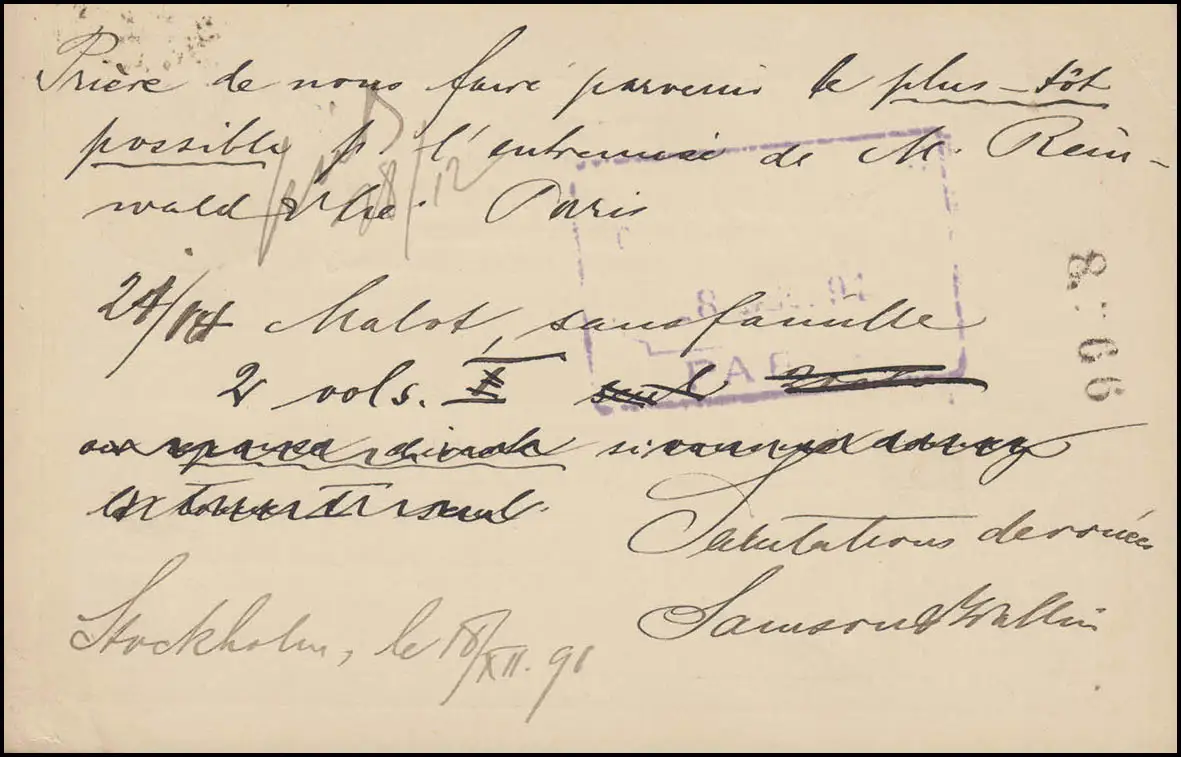 Prière de nous faire parvenir le plus-tôt
possible p l'entremise de M. Rein-
wald & Cie Paris
18/12
24/14 Malot, sans famille
2 vols. II seul
si
seul
Salutations dévouées
Samson & Wallin
Stockholm, le 18/XII. 91
8 91
PA
8 66